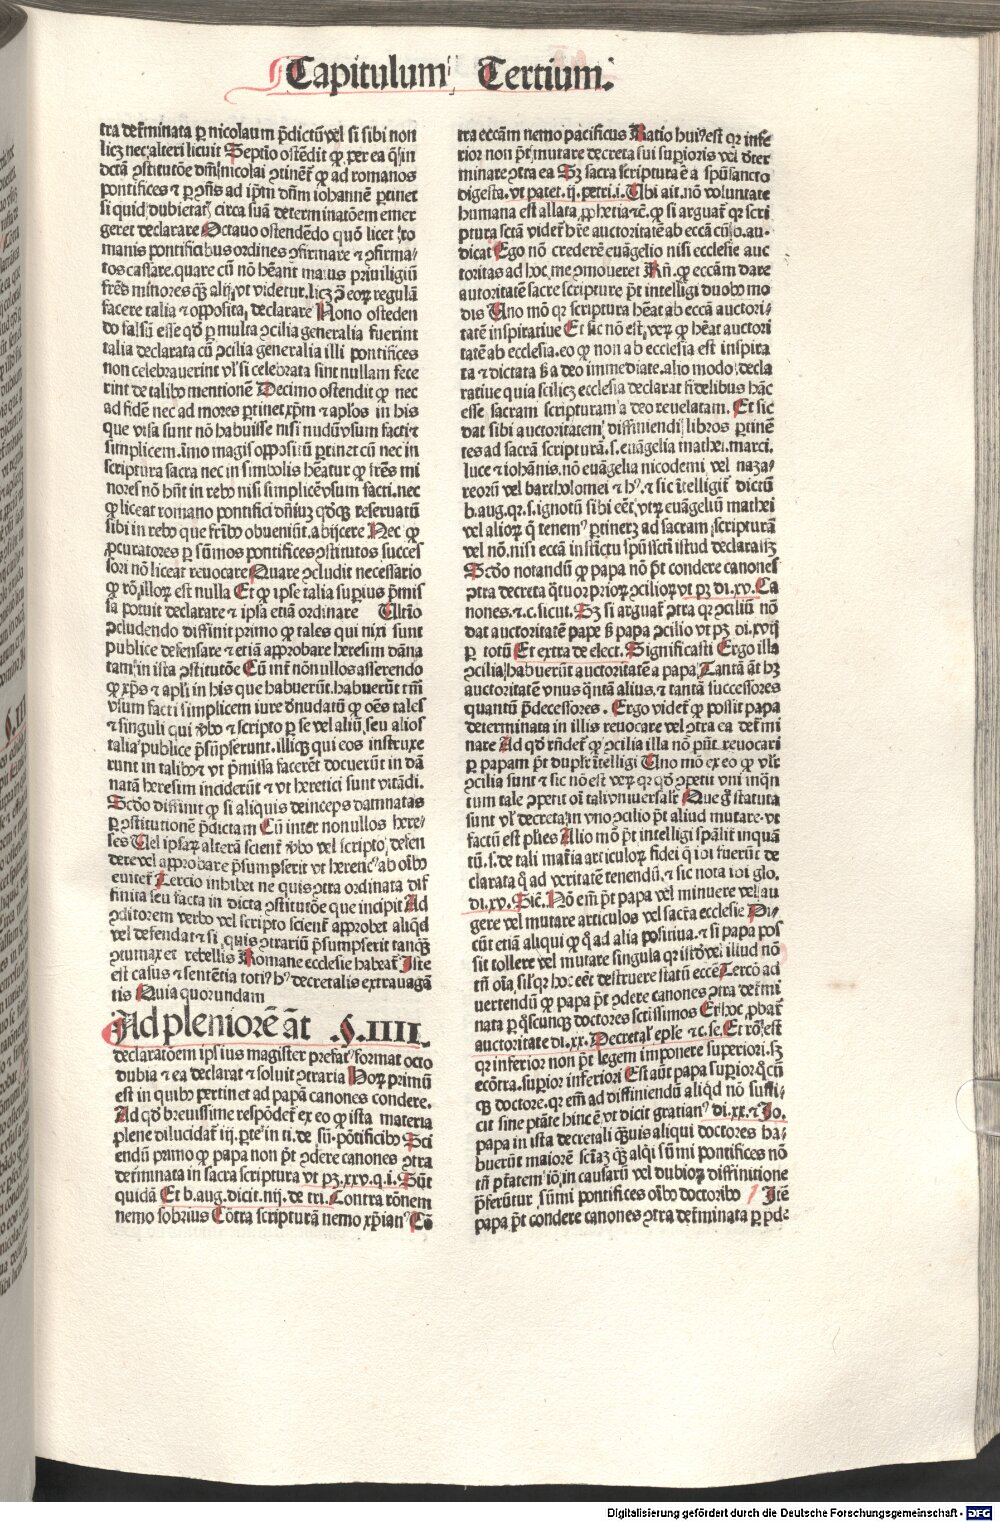 Capitulum Tertium.
tra det̄minata ꝑ nicolaum p̄dictū vel si sibi non
licꝫ nec alteri licuit Septīo ostēdit ꝙ per ea q̄ in
dicta ꝯstitutōe dn̄i nicolai ꝯtinet̄ ꝙ ad romanos
pontifices ⁊ ꝑ ꝯn̄s ad ip̄m dn̄m iohannē ꝑtinet
si quid dubietat̄ circa suā determinatōem emer
geret declarare Octauo ostendēdo quō licet ro
manis pontificibus ordines ꝯfirmare ⁊ ꝯfirma⸗
tos cassare. quare cū nō hēant maius priuilegiū
frēs minores qꝫ alij vt videtur. licꝫ ꝯ̄ eoꝝ regulā
facere talia ⁊ opposita declarare Nono osteden
do falsū esse qd̄ ꝑ multa ꝯcilia generalia fuerint
talia declarata cū ꝯcilia generalia illi pontifices
non celebrauerint vl̓ si celebrata sint nullam fece
rint de talibꝰ mentionē Decimo ostendit ꝙ nec
ad fidē nec ad mores ꝑtinet xp̄m ⁊ apl̄os in his
que vsa sunt nō habuisse nisi nudū vsum facti ⁊
simplicem. īmo magis oppositū ꝑtinet cū nec in
scriptura sacra nec in simbolis hēatur ꝙ frēs mi
nores nō hn̄t in rebꝰ nisi simplicē vsum facti. nec
ꝙ liceat romano pontifici dn̄iuꝫ qd̄cꝫ reseruatū
sibi in rebꝰ que fr̄ibꝰ obueniūt. abijcere Nec ꝙ
ꝓcuratores ꝑ sūmos pontifices ꝯstitutos succes
sori nō liceat reuocare Quare ꝯcludit necessario
ꝙ rō illoꝝ est nulla Et ꝙ ipse talia supius p̄mis
sa potuit declarare ⁊ ipsa etiā ordinare Vltīo
ꝯcludendo diffinit primo ꝙ tales qui nixi sunt
publice defensare ⁊ etiā approbare heresim dāna
tam in ista ꝯstitutōe Cū int̄ nōnullos asserendo
ꝙ xp̄s ⁊ apl̄i in his que habuerūt. habuerūt tm̄
vsum facti simplicem iure dn̄udatū ꝙ oēs tales
⁊ singuli qui v̄bo ⁊ scripto ꝑ se vel aliū seu alios
talia publice p̄sūpserunt. illiqꝫ qui eos instruxe
runt in talibꝰ ⁊ vt p̄missa facerēt docuerūt in dā
natā heresim inciderūt ⁊ vt heretici sunt vitādi.
Scd̄o diffinit ꝙ si aliquis deinceps damnatas
ꝑ ꝯstitutionē p̄dictam Cū inter nonullos here⸗
ses Vel ipsaꝝ alterā scient̄ v̄bo vel scripto defen
dere vel approbare p̄sumpserit vt heretic̓ ab oībꝰ
euitet̄ Tercio inhibet ne quis ꝯtra ordinata dif
finita seu facta in dicta ꝯstitutōe que incipit Ad
ꝯditorem verbo vel scripto scient̄ approbet aliqd̄
vel defendat ⁊ si quis ꝯtrariū p̄sumpserit tanqꝫ
ꝯtumax et rebellis Romane ecclesie habeat̄ Iste
est casus ⁊ sentētia toti⁹ h⁹ decretalis extrauagā
tis Quia quorundam
Ad pleniorē āt .§.IIII.
declaratōem ipsius magister prefat⁹ format octo
dubia ⁊ ea declarat ⁊ soluit ꝯtraria Hoꝝ primū
est in quibꝰ pertinet ad papā canones condere.
Ad qd̄ breuissime respōdet̄ ex eo ꝙ ista materia
plene dilucidat̄ iij. ꝑte in ti. de sū. pōtificibꝰ Sci
endū primo ꝙ papa non p̄t ꝯdere canones ꝯtra
det̄minata in sacra scriptura vt pꝫ. xxv. q. i. Sūt
quidā Et b. aug. dicit. iiij. de tri. Contra rōnem
nemo sobrius Cōtra scripturā nemo xp̄ian⁹ Cō
tra eccām nemo pacificus Ratio hui⁹ est qꝛ infe
rior non p̄t mutare decreta sui superioris vel deter
minare ꝯtra ea Sꝫ sacra scriptura ē a spū sancto
digesta. vt patet. ij. petri. i. Vbi ait. nō voluntate
humana est allata ꝓphetia ⁊c̄. ꝙ si arguat̄ qꝛ scri
ptura sctā videt̄ hr̄e auctoritatē ab eccā cū b. au⸗
dicat Ego nō crederē euāgelio nisi ecclesie auc
toritas ad hoc me ꝯmoueret Rn̄. ꝙ eccām dare
autoritatē sacre scripture p̄t intelligi duobꝰ mo
dis Vno mō qꝛ scriptura hēat ab eccā auctori⸗
tatē inspiratiue Et sic nō est veꝝ ꝙ hēat auctori
tatē ab ecclesia. eo ꝙ non ab ecclesia est inspira
ta ⁊ dictata s̄ a deo immediate. alio modo decla
ratiue quia scilicꝫ ecclesia declarat fidelibus hāc
esse sacram scripturam a deo reuelatam. Et sic
dat sibi auctoritatem diffiniendi libros ꝑtinē
tes ad sacrā scripturā. s. euāgelia mathei. marci.
luce ⁊ iohānis. nō euāgelia nicodemi vel naza⸗
reoru vel bartholomei ⁊ h⁹. ⁊ sic ītelligit̄ dictū
b. aug. qꝛ. s. ignotū sibi eēt. vtꝝ euāgeliū mathei
vel alioꝝ q̄ tenem⁹ ꝑtineꝫ ad sacram scripturam
vel nō. nisi eccā instīctu spūsscti istud declarasꝫ
Scd̄o notandū ꝙ papa nō p̄t condere canones
ꝯtra decreta q̄tuor prioꝝ ꝯcilioꝝ vt pꝫ di. xv. Ca
nones. ⁊. c. sicut. Sꝫ si arguat̄ ꝯtra qꝛ ꝯciliū nō
dat auctoritatē pape s̄ papa ꝯcilio vt pꝫ di. xvij
ꝑ totū Et extra de elect. Significasti Ergo illa
ꝯcilia habuerūt auctoritatē a papa Tantā āt hꝫ
auctoritatē vnus q̄ntā alius. ⁊ tantā successores
quantū p̄decessores. Ergo videt̄ ꝙ possit papa
determinata in illis reuocare vel ꝯtra ea det̄mi
nare Ad qd̄ rn̄det̄ ꝙ ꝯcilia illa nō pn̄t reuocari
ꝑ papam p̄t duplr̄ ītelligi Vno mō ex eo ꝙ vlr̄
ꝯcilia sunt ⁊ sic nō est veꝝ qꝛ qd̄ ꝯpetit vni inqn̄
tum tale ꝯpetit oī tali vniuersalr̄ Que g̊ statuta
sunt vl̓ decreta in vno ꝯcilio p̄t aliud mutare vt
factū est pl̓ies Alio mō p̄t intelligi spāliť inquā
tū. s. de tali mat̄ia articuloꝝ fidei q̄ ibi fuerūt de
clarata q̄ ad veritatē tenendū. ⁊ sic nota ibi glo.
di. xv. Sic̄. Nō em̄ p̄t papa vel minuere vel au
gere vel mutare articulos vel sacr̄a ecclesie Di⸗
cūt etiā aliqui ꝙ q̄ ad alia positiua. ⁊ si papa pos
sit tollere vel mutare singula qꝛ istd̄ vel illud nō
tn̄ oīa sil̓ qꝛ hoc eēt destruere statū ecc̄e Tercō ad
uertendū ꝙ papa p̄t ꝯdere canones ꝯtra det̄mi
nata ꝑ q̄scunqꝫ doctores sctissimos Et hoc ꝓbat̄
auctoritate di. xx. Decretal̓ ep̄le ⁊. c. se. Et rō est
qꝛ inferior non p̄t legem imponere superiori. sꝫ
ecōtra. supior inferiori Est aūt papa superior q̊cū
qꝫ doctore. qꝛ em̄ ad diffiniendū aliqd̄ nō suffi⸗
cit sine ptāte hinc ē vt dicit gratian⁹ di. xx. ⁊ Io.
papa in ista decretali qꝫuis aliqui doctores ha⸗
buerūt maiorē sctāꝫ qꝫ alqi sūmi pontifices nō
tn̄ ptātem iō in causaru vel dubioꝝ diffinitione
p̄ferūtur sūmi pontifices oībꝰ doctoribꝰ Itē
papa p̄t condere canones ꝯtra det̄minata ꝑ p̄de
Digitalisierung gefördert durch die Deutsche Forschungsgemeinschaft - DFG